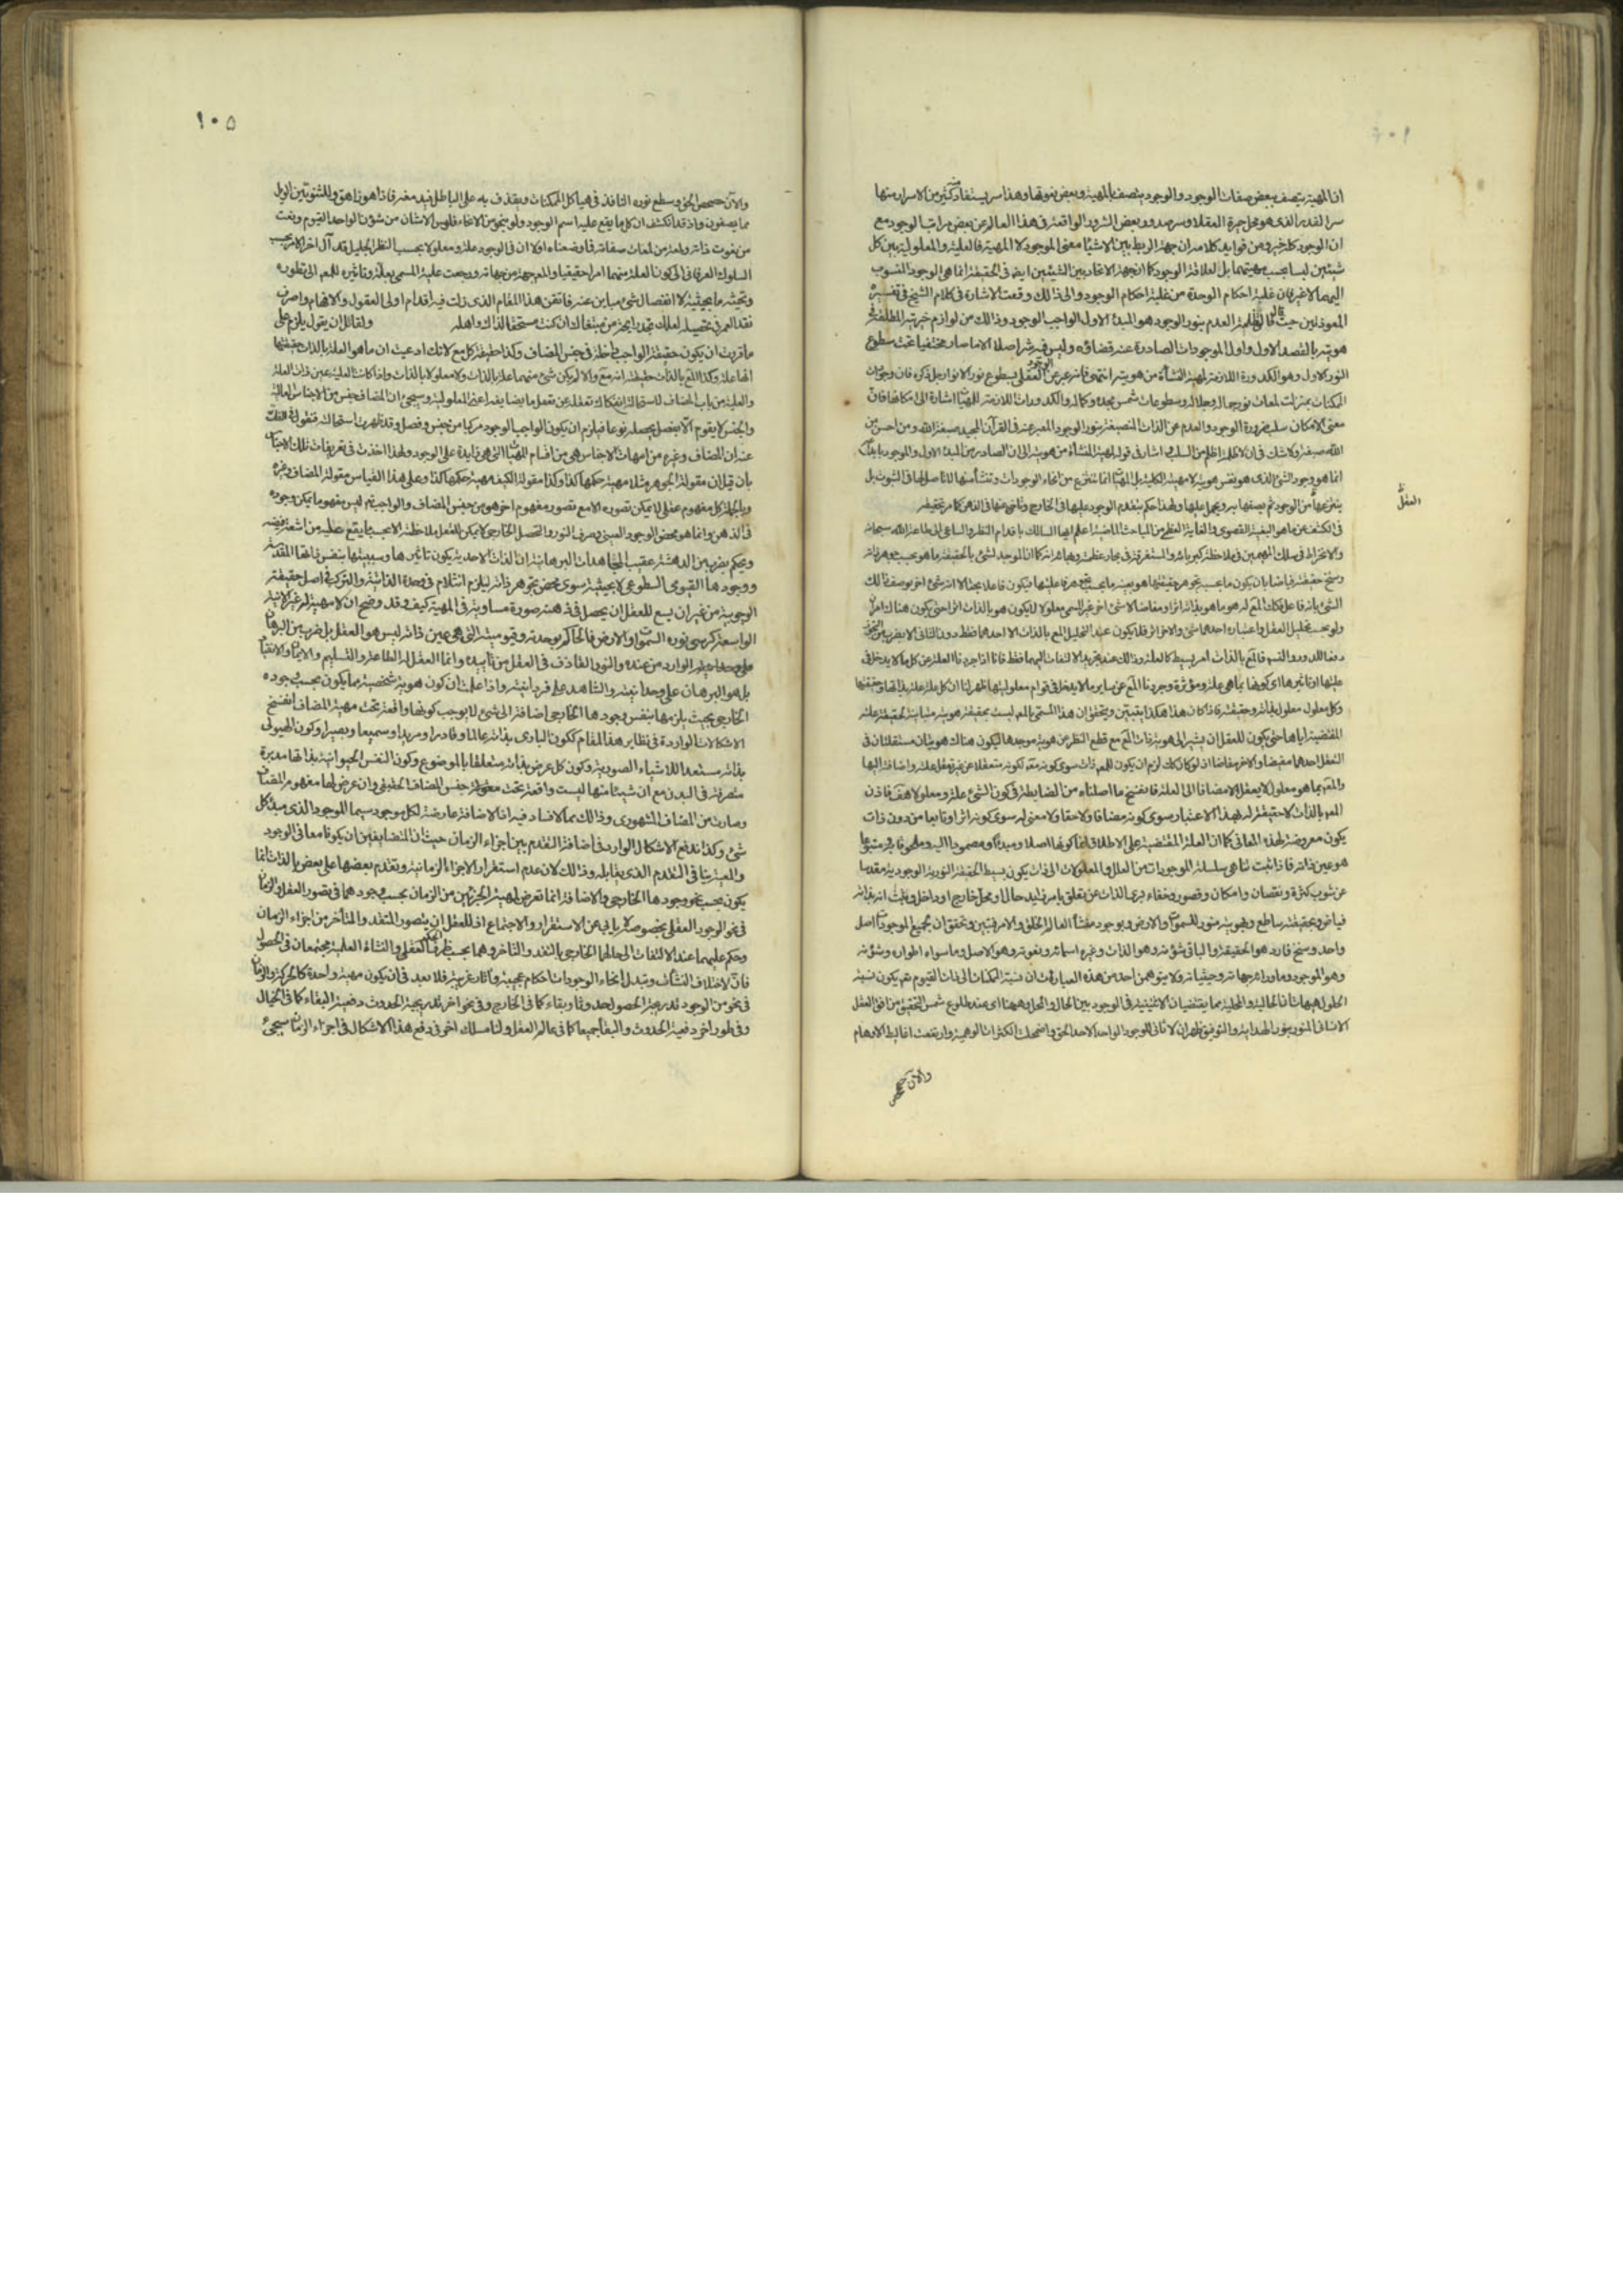 ١٠٤
ان المهية يتصف ببعض صفات الوجود والوجود يتصف بالمهية وبعض نعوتها وهذا سر يستفاد منه كثير من الاسرار منها
سر القدر الذى هو محل حيرة العقلاء وسر صدور بعض الشرور الواقعة فى هذا العالم عن بعض مراتب الوجود مع
ان الوجود كله خير ومن فوايد كلامه ان جهة الربط بين الاشياء معنى الوجود لا المهية فالعلية والمعلولية بين كل
شيئين ليسا بحسب مهيتهما بل لعلاقة الوجود كما ان جهة الاتحاد بين الشيئين ايضا فى الحقيقة انما هى الوجود المنسوب
اليهما لا غير فان غلبة احكام الوحدة من غلبة احكام الوجود والى ذالك وقعت الاشارة فى كلام الشيخ فى تفسيره
المعوذتين حيث قال فالق ظلمة العدم بنور الوجود هو المبدء الاول الواجب الوجود وذالك من لوازم خيريته المطلقة فى
هويته بالقصد الاول واول الموجودات الصادرة عنه قضاؤه وليس فيه شر اصلا الا ما صار مختفيا تحت سطوع
النور الاول وهو الكدورة اللازمة لمهيته المنشأة من هويته انتهى فانه عبر عن الوجود العقلى بسطوع نور الانوار جل ذكره فان وجودات
الممكنات بمنزلة لمعات نور جماله وجلاله وسطوعات شمس مجده وكماله والكدورات اللازمة للمهيات اشارة الى امكانها فان
معنى الامكان سلب ضرورة الوجود والعدم عن الذات المنصبغة بنور الوجود المعبر عنه فى القرآن المجيد صبغة الله ومن احسن من
الله صبغة ولا شك فى ان لا ظلمة اظلم من السلب ثم اشار فى قوله لمهيته المنشأة من هويته الى ان الصادر من المبدء الاول والموجود بابداعه
انما هو وجود الشئ الذى هو نفس هويته لا مهيته الكلية بل المهيات انما تنتزع من انحاء الوجودات وتنشأ منها لا تأصل لها فى الثبوت بل
ينتزعها من الوجود ثم يصفها به ويحمل عليها ولهذا حكم بتقدم الوجود عليها فى الخارج وتأخره عنها فى الذهن كما مر تحقيقه
العقل
فى الكشف عما هو البغية القصوى والغاية العظمى من المباحث الماضية اعلم ايها السالك باقدام النظر والساعى الى طاعة الله سبحانه
والانخراط فى سلك المهيمين فى ملاحظة كبريائه والمستغرقين فى بحار عظمته وبهائه انه كما ان الموجد لشئ بالحقيقة ما هو بحسب جوهر ذاته
وسنخ حقيقته فياضا بان يكون ما بحسب تجوهر حقيقتها هو بعينه ما بحسب تجوهر فاعليتها فيكون فاعلا بحتا لا انه شئ اخر يوصف ذالك
الشئ بانه فاعل فكذلك المع له هو ما هو بذاته اثر ومفاض لا شئ اخر غير المسمى معلولا لا يكون هو بالذات اثرا حتى يكون هناك امران
ولو بحسب تحليل العقل واعتباره احدهما شئ والاخر اثر فلا يكون عند التحليل المع بالذات الا احدهما فقط دون الثانى الا بضرب من التجوز
دفعا للدور والتسلسل فالمع بالذات امر بسيط كالعلة وذالك عند تجريد الالتفات اليهما فقط فانا اذا جردنا العلة عن كل ما لا يدخل فى
عليتها وتاثيرها اى كونها بما هى علة ومؤثرة وجردنا المع عن سائر ما لا يدخل فى قوام معلوليتها ظهر لنا ان كل علة علة بذاتها وحقيقتها
وكل معلول معلول بذاته وحقيقته فاذا كان هذا هكذا يتبين ويتحقق ان هذا المسمى بالمع ليست بحقيقته هوية مباينة لحقيقة علته
المفيضة اياها حتى يكون للعقل ان يشير الى هوية ذات المع مع قطع النظر عن هوية موجدها فيكون هناك هويتان مستقلتان فى
التعقل احدهما مفيضا والاخر مفاضا اذ لو كان كذلك لزم ان يكون للمع ذات سوى كونه مع لكونه متعقلا من غير تعقل علته واضافته اليها
والمع بما هو معلول لا يعقل الا مضافا الى العلة فانفسخ ما اصلناه من الضابط فى كون الشئ علة ومعلولا هف فاذن
المع بالذات لا حقيقة له بهذا الاعتبار سوى كونه مضافا ولاحقا ولا معنى له سوى كونه اثرا وتابعا من دون ذات
يكون معروضة لهذه المعانى كما ان العلة المفيضة على الاطلاق انما كونها اصلا ومبدأ ومصمودا اليه وملحوقا به ومتبوعا
هو عين ذاته فاذا ثبت تناهى سلسلة الموجودات من العلل والمعلولات الى ذات يكون بسيط الحقيقة النورية الوجودية مقدسا
عن شوب كثرة ونقصان وامكان وقصور وخفاء برئ الذات عن تعلق بامر زايد حال او محل خارج او داخل وثبت انه بذاته
فياض وبحقيقته ساطع وبهويته منور للسموات والارض وبوجوده منشأ العالم الخلق والامر تبين وتحقق ان لجميع الموجودات اصل
واحد وسنخ فارد هو الحقيقة والباقى شؤنه وهو الذات وغيره اسمائه ونعوته وهو الاصل وما سواه اطواره وشؤنه
وهو الموجود وما وراءه جهاته وحيثياته ولا يتوهمن احد من هذه العبارات ان نسبة الممكنات الى ذات القيوم تع يكون نسبة
الحلول هيهات ان الحالية والمحلية مما يقتضيان الاثنينية فى الوجود بين الحال والمحل وههنا اى عند طلوع شمس التحقيق من افق العقل
الانسانى المنور بنور الهداية والتوفيق ظهر ان لا ثانى للوجود الواحد الاحد الحق واضمحلت الكثرات الوهمية وارتفعت اغاليط الاوهام
والآن حصحص
١٠٥
والآن حصحص الحق وسطع نوره النافذ فى هياكل الممكنات ويقذف به على الباطل فيدمغه فاذا هو زاهق وللثنويين الويل
مما يصفون واذ قد انكشف ان كل ما يقع عليه اسم الوجود ولو بنحو من الانحاء فليس الا شان من شؤن الواحد القيوم ونعت
من نعوت ذاته ولمعة من لمعات صفاته فما وضعناه اولا ان فى الوجود علة ومعلولا بحسب النظر الجليل قد آل آخر الامر بحسب
السلوك العرفانى الى كون العلة منهما امرا حقيقيا والمع جهة من جهاته ورجعت علية المسمى بعلة وتاثيره للمع الى تطوره
وتحيثه بحيثية لا انفصال شئ مباين عنه فاتقن هذا المقام الذى زلت فيه اقدام اولى العقول والافهام واصرف
نقد العمر فى تحصيله لعلك تجد رايحة من مبتغاك ان كنت مستحقا لذاك واهله ولقائل ان يقول يلزم على
ما قررت ان يكون حقيقة الواجب داخلة فى جنس المضاف وكذا حقيقة كل مع لانك ادعيت ان ما هو العلة بالذات حقيقتها
انها علة وكذا المع بالذات حقيقته انه مع والا لم يكن شئ منهما علة بالذات ولا معلولا بالذات واذا كانت العلية عين ذات العلة
والعلية من باب المضاف لاستحالة انفكاك تعقله عن تعقل ما يضايفه اعنى المعلولية وسيجئ ان المضاف جنس من الاجناس العالية
والجنس لا يقوم الا بفصل يحصله نوعا فيلزم ان يكون الواجب الوجود مركبا من جنس وفصل وقد ظهرت استحالته فنقول فى الفك
عنه ان المضاف وغيره من امهات الاجناس هى من اقسام المهيات التى هى زايدة على الوجود ولهذا اخذت فى تعريفات تلك الاجناس
بان قيل ان مقولة الجوهر مثلا مهية حكمها كذا وكذا مقولة الكيف مهية حكمها كذا وعلى هذا القياس مقولة المضاف وغيره
وبالجملة كل مفهوم عقلى لا يمكن تصوره الا مع تصور مفهوم اخر هو من جنس المضاف والواجب تع ليس مفهوما يمكن وجوده
فى الذهن وانما هو محض الوجود العينى وصرف النور والتحصل الخارجى لا يمكن للعقل ملاحظته الا بحسب ما يقع عليه من اشعة فيضه
ويحكم بضرب من الدهشة عقيب المجاهدات البرهانية ان الذات الاحدية يكون تاثيرها وسببيتها بنفس ذاتها المقدسة
ووجودها القيومى السطوعى لا بحيثية سوى محض تجوهر ذاته ليلزم انثلام فى وحدة الذاتية والتركيب فى اصل حقيقته
الوجوبية من غير ان يسع للعقل ان يحصل فى ذهنه صورة مساوية فى المهية كيف وقد وضح ان لا مهية له غير الانية
الواسعة كرسى نوره السموات والارض فالحاكم بوحدته وقيوميته التى هى عين ذاته ليس هو العقل بل ضرب من البرهان
الوارد من عنده والنور القاذف فى العقل من تأييده وانما العقل له الطاعة والتسليم والايمان والانقياد
بل هو البرهان على وحدانيته والشاهد على فردانيته واذا علمت ان كون هوية شخصية مما يكون بحسب وجوده
الخارجى بحيث يلزمها بنفس وجودها الخارجى اضافة الى شئ لا يوجب كونها واقعة تحت مهية المضاف انفسخ
الاشكالات الواردة فى نظاير هذا المقام ككون البارى بذاته عالما وقادرا ومريدا وسميعا وبصيرا وكون الهيولى
بذاته مستعدا للاشياء الصورية وكون كل عرض بذاته متعلقا بالموضوع وكون النفس الحيوانية بذاتها مدبرة
متصرفة فى البدن مع ان شيئا منها ليست واقعة تحت مقولة جنس المضاف الحقيقى وان عرض لها مفهوم المضاف
وصارت من المضاف المشهورى وذالك مما لا فساد فيه اذ الاضافة عارضة لكل موجود سيما الموجود الذى مبدأ كل
شئ وكذا اندفع الاشكال الوارد فى اضافة التقدم بين اجزاء الزمان حيث ان المتضايفين ان يكونا معا فى الوجود
والمعية ينافى التقدم الذى يقابله وذالك لان عدم استقرار الاجزاء الزمانية وتقدم بعضها على بعض بالذات انما
يكون بحسب نحو وجودها الخارجى والاضافة انما تعرض لمهية الجزئين من الزمان بحسب وجودهما فى تصور العقل والزمان
فى نحو الوجود العقلى بخصوصه لا يابى عن الاستقرار والاجتماع اذ للعقل ان يتصور المتقدم والمتأخر من اجزاء الزمان
وحكم عليهما عند الالتفات الى حالهما الخارجى بالتقدم والتاخر وهما بحسب ظرف الحكم العقلى والنشاة العلمية مجتمعان فى الحصول
فان لاختلاف النشأت وتبدل انحاء الوجودات احكام عجيبة وآثار غريبة فلا بعد فى ان يكون مهية واحدة كالحركة والزمان
فى نحو من الوجود تدريجية الحصول حدوثا وبقاء كما فى الخارج وفى نحو اخر تدريجية الحدوث دفعية البقاء كما فى الخيال
وفى طور اخر دفعية الحدوث والبقاء جميعا كما فى عالم العقل ولنا مسلك اخر فى دفع هذا الاشكال فى اجزاء الزمان سيجئ